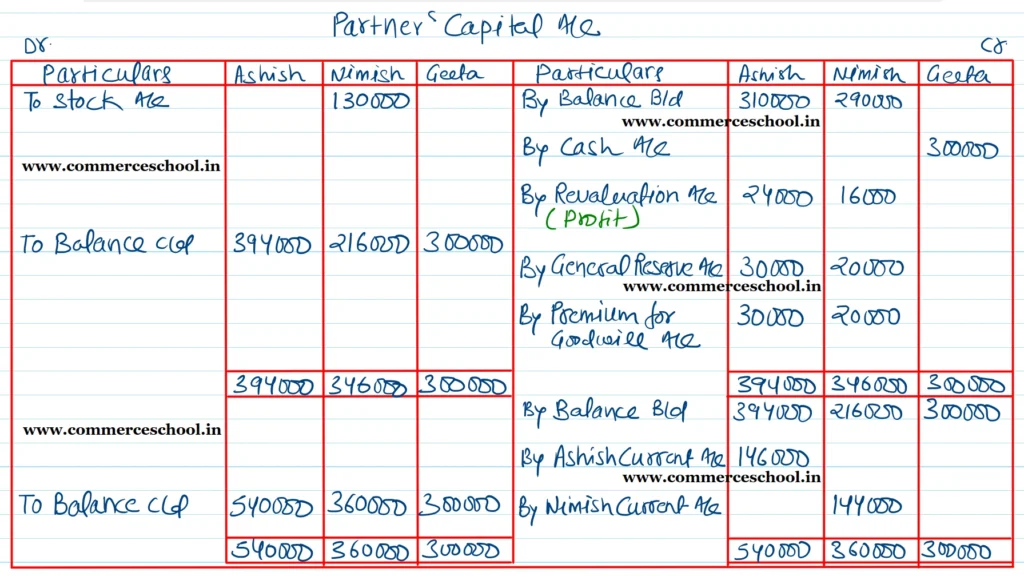 Partner's Capital A/c
Dr. Cr
Particulars Ashish Nimish Geeta Particulars Ashish Nimish Geeta
To Stock A/c 130000 By Balance B/d 310000 290000
www.commerceschool.in
By Cash A/c 300000
www.commerceschool.in
By Revaluation A/c 24000 16000
(Profit)
To Balance C/d 394000 216000 300000
By General Reserve A/c 30000 20000
www.commerceschool.in
By Premium for 30000 20000
Goodwill A/c
394000 346000 300000 394000 346000 300000
By Balance B/d 394000 216000 300000
www.commerceschool.in
By Ashish Current A/c 146000
www.commerceschool.in
To Balance C/d 540000 360000 300000 By Nimish Current A/c 144000
540000 360000 300000 540000 360000 300000